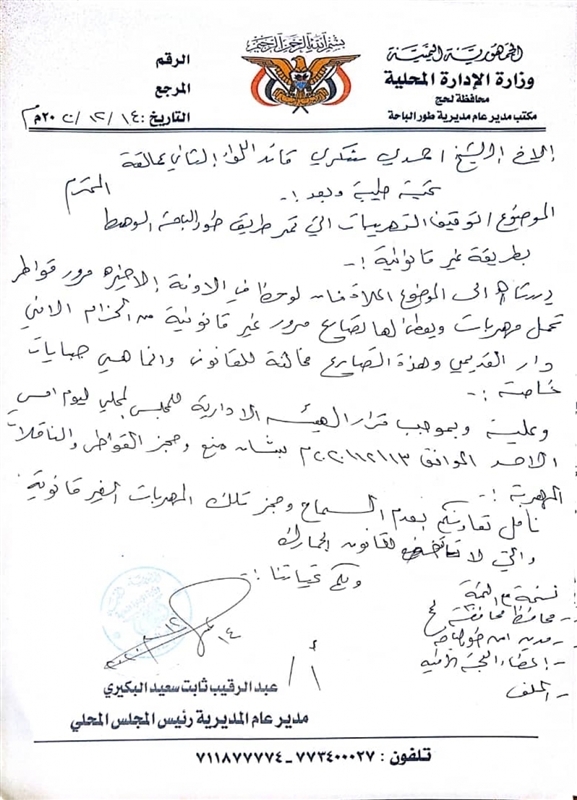 بسم الله الرحمن الرحيم
الجمهورية اليمنية
وزارة الإدارة المحلية
محافظة لحج
مكتب مدير عام مديرية طور الباحة
الرقم
المرجع
التاريخ: ١٤ / ١٢ / ٢٠٢٠م
الاخ الشيخ / حمدي شكري قائد اللواء الثاني عمالقة
المحترم
تحية طيبة وبعد :-
الموضوع / توقيف التهريبات التي تمر طريق طور الباحة الوهط
بطريقة غير قانونية :-
الى الموضوع اعلاه فان لوحظ في الاونة الاخيره مرور قواطر
تحمل مهربات ويعطى لها تصاريح مرور غير قانونية من الحزام الامني
دار القديمي وهذه التصاريح مخالفة للقانون وانما هي جبايات
خاصة :-
وعلية وبموجب قرار الهيئه الادارية للمجلس المحلي ليوم امس
الاحد الموافق ٢٠٢٠/١٢/١٣م بشان منع وحجز القواطر والناقلات
المهربة :-
نامل تعاونكم بعدم السماح وحجز تلك المهربات الغير قانونية
والتي لا تخضع لقانون الجمارك
ولكم تحياتنا :-
نسخة مع التحية
- محافظ محافظة لحج
- مدير امن طور الباحة
- اعضاء اللجنة الامنيه
- الملف
١٤
١٢
٢٠٢٠
أ / عبدالرقيب ثابت سعيد البكيري
مدير عام المديرية رئيس المجلس المحلي
تلفون : ٧٧٣٤٠٠٠٢٧ - ٧١١٨٧٧٧٧٤